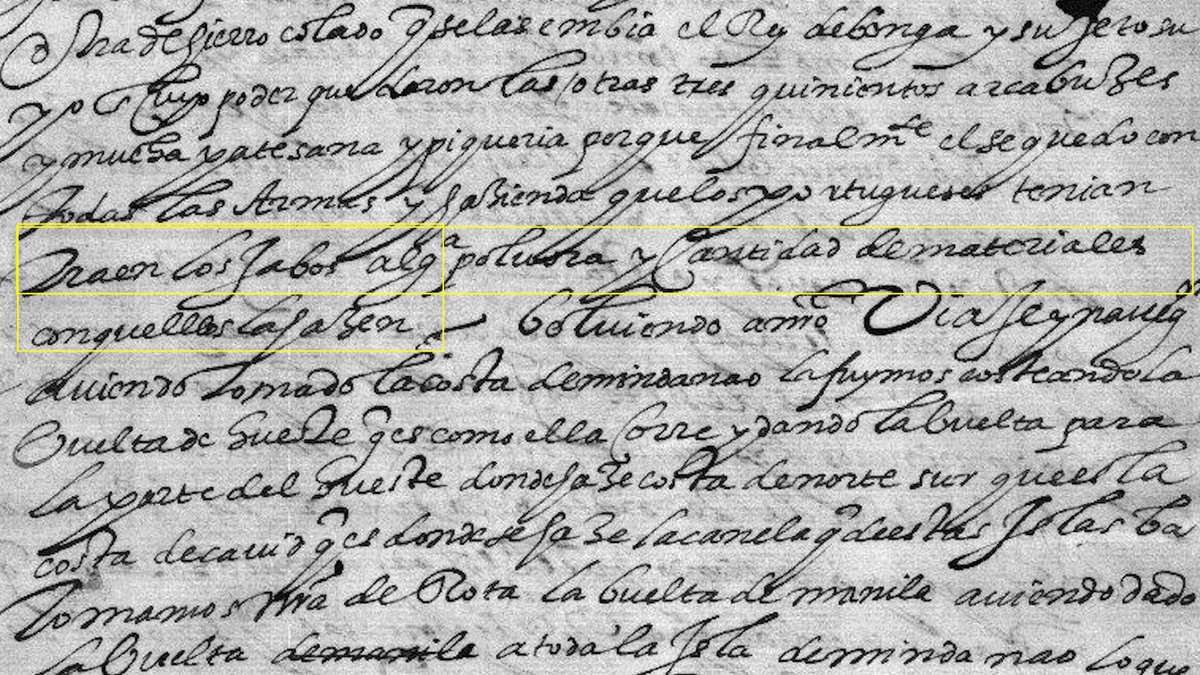 otra de hierro colado q se las embia el Rey de bonga y su hero su
y o cuyo poder quedaron las otras tres quinientos arcabuzes
y mucha partesana y piqueria porque finalmte el se quedo con
todas las Armas y hazienda que los portugueses tenian
traen los Jabos alga polvora y Cantidad de materiales
con que ellos la hazen bolviendo a mio Viaje y naveg
aviendo tomado la costa de mindanao la fuymos costeando la
buelta de hueste q es como ella Corre y dando la buelta para
la parte del hueste donde haze costa de norte sur que es la
costa de cavid q es donde se haze la canela q de estas Islas ba
tomamos nra deRota la buelta de manila aviendo dado
la buelta a toda la Isla de mindanao lo que